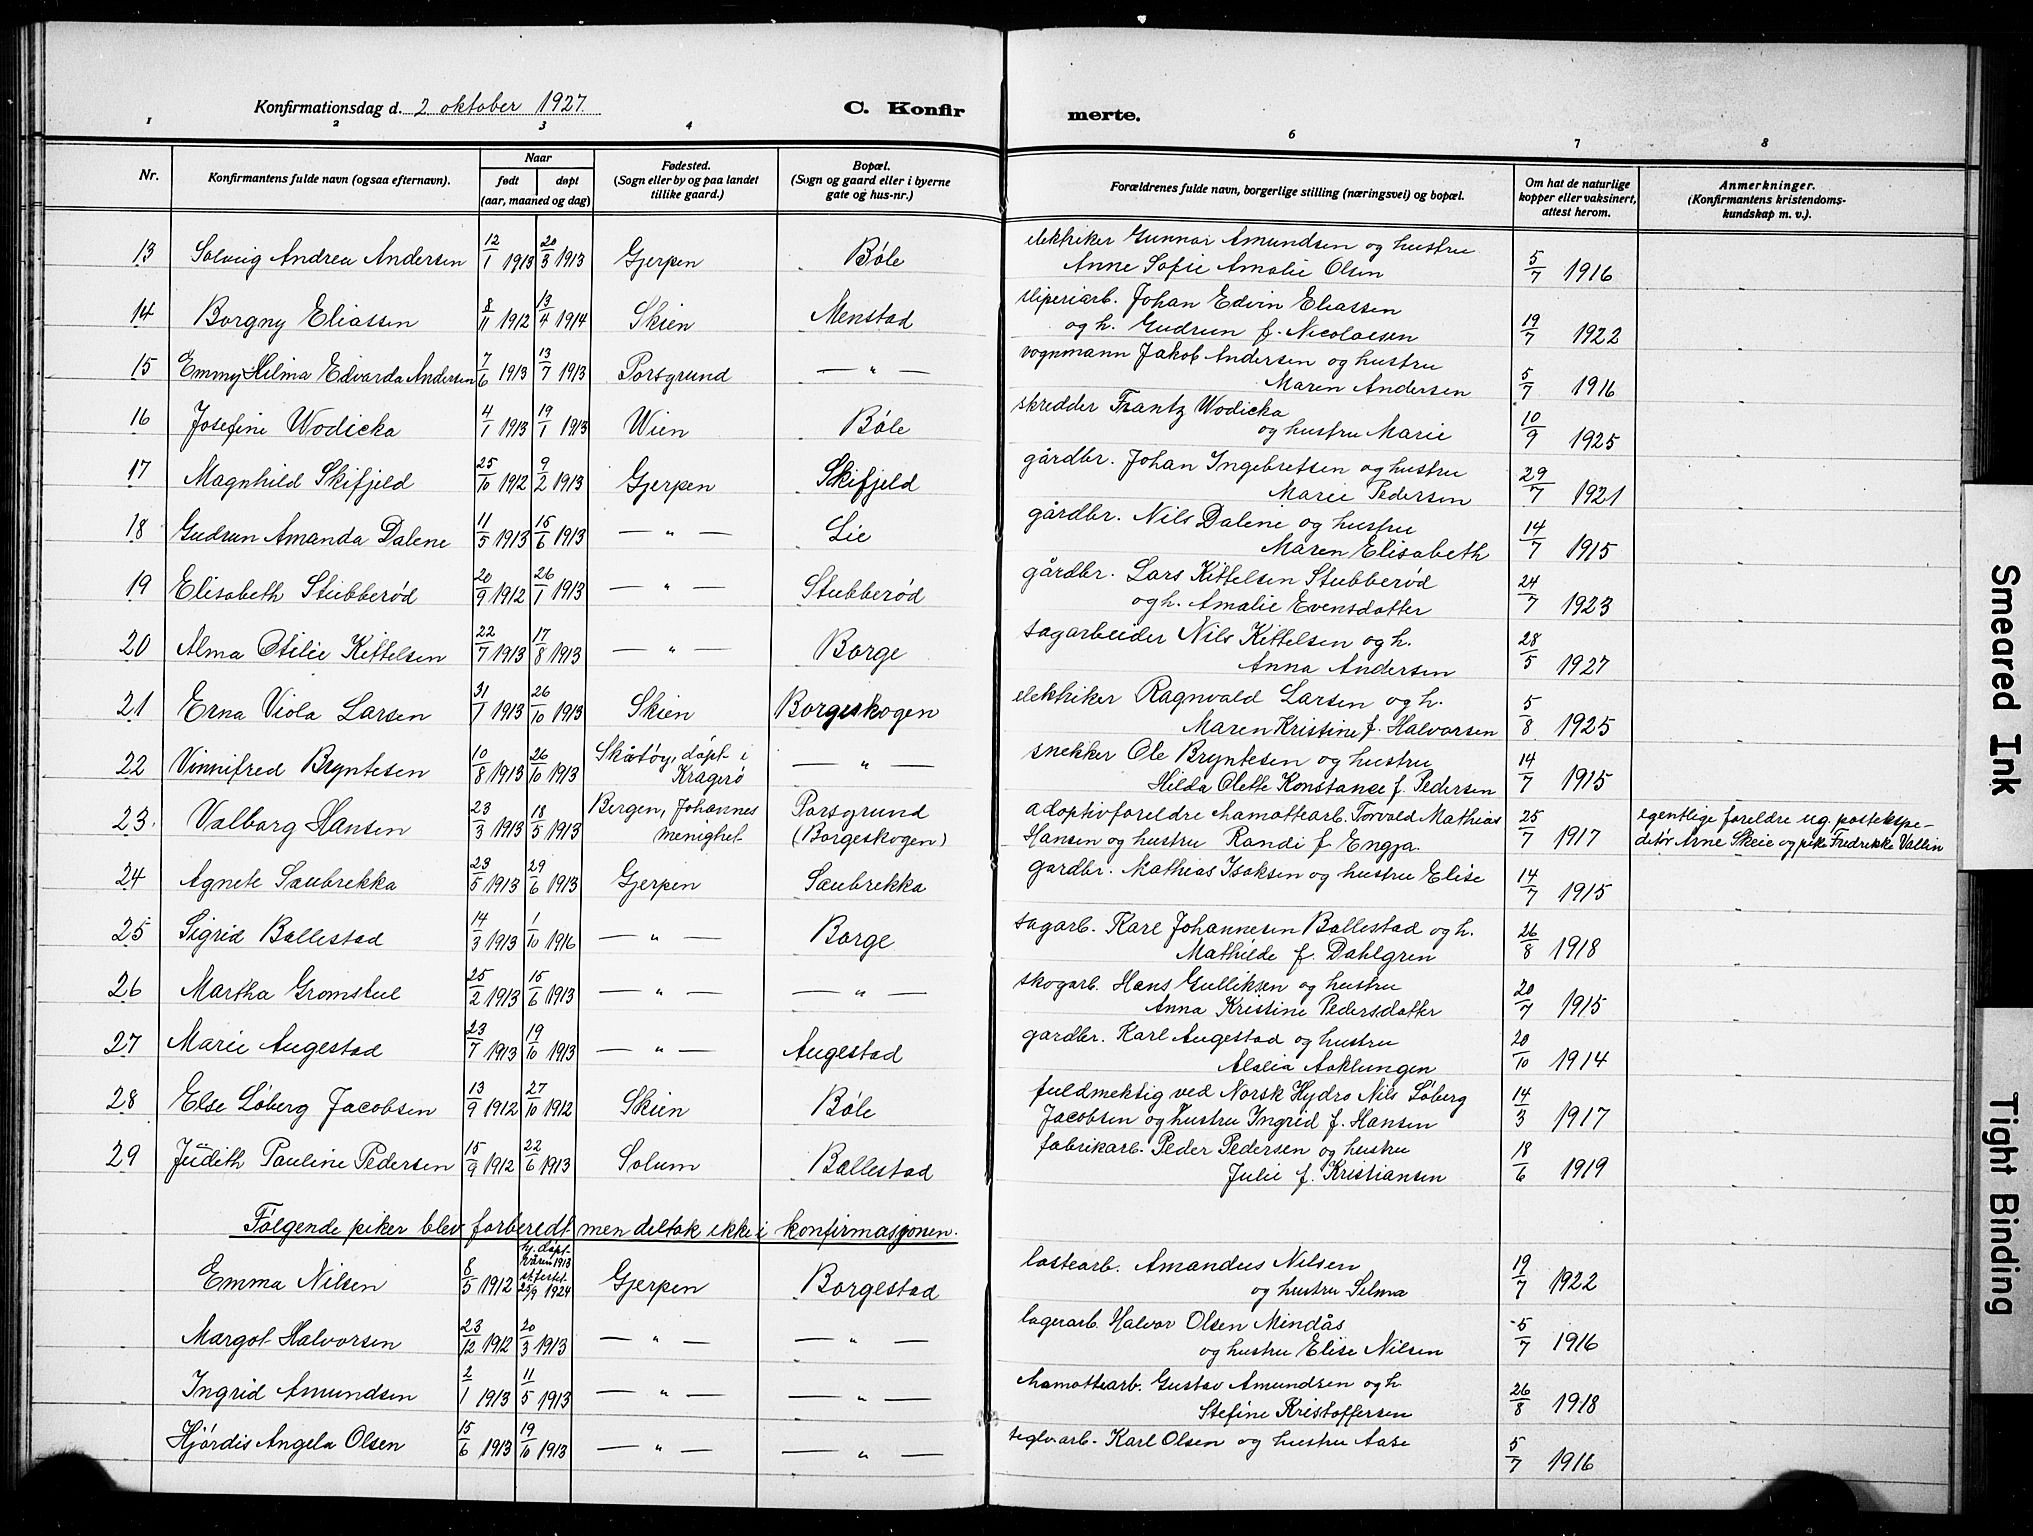 Konfirmationsdag d. 2 oktober 1927.
C. Konfirmerte.
1 2 3 4 5 6 7 8
Nr. | Konfirmantens fulde navn (ogsaa efternavn). | Naar født | døpt (aar, maaned og dag) | Fødested. (Sogn eller by og paa landet tillike gaard.) | Bopæl. (Sogn og gaard eller i byerne gate og hus-nr.) | Forældrenes fulde navn, borgerlige stilling (næringsvei) og bopæl. | Om hat de naturlige kopper eller vaksinert, attest herom. | Anmerkninger. (Konfirmantens kristendoms-kundskap m. v.).
13 Solveig Andrea Andersen 12/1 1913 20/3 1913 Gjerpen Bøle elektriker Gunnar Amundsen og hustru Anne Sofie Amalie Olsen 5/7 1916
14 Borgny Eliassen 8/11 1912 13/4 1914 Skien Menstad sliperiarb. Johan Edvin Eliassen og h. Gudrun f. Nicolaisen 19/7 1922
15 Emmy Hilma Edvarda Andersen 7/6 1913 13/7 1913 Porsgrund — " — vognmann Jakob Andersen og hustru Maren Andersen 5/7 1916
16 Josefine Wodicka 4/1 1913 19/1 1913 Wien Bøle skredder Frantz Wodicka og hustru Marie 10/9 1925
17 Magnhild Skifjeld 25/10 1912 9/2 1913 Gjerpen Skifjeld gårdbr. Johan Ingebretsen og hustru Marie Pedersen 29/7 1921
18 Gudrun Amanda Dalene 11/5 1913 15/6 1913 — " — Lie gårdbr. Nils Dalene og hustru Maren Elisabeth 14/7 1915
19 Elisabeth Stubberød 20/9 1912 26/1 1913 — " — Stubberød gårdbr. Lars Kittelsen Stubberød og h. Amalie Evensdatter 24/7 1923
20 Alma Otilie Kittelsen 22/7 1913 17/8 1913 — " — Borge sagarbeider Nils Kittelsen og h. Anna Andersen 28/5 1927
21 Erna Viola Larsen 31/1 1913 26/10 1913 Skien Borgeskogen elektriker Ragnvald Larsen og h. Maren Kristine f. Halvorsen 5/8 1925
22 Vinnifred Bryntesen 10/8 1913 26/10 1913 Skåtøy, døpt i Kragerø — " — snekker Ole Bryntesen og hustru Hilda Olette Konstance f. Pedersen 14/7 1915
23. Valborg Hansen 23/3 1913 18/5 1913 Bergen, Johannes menighet Porsgrund (Borgeskogen) adoptivforeldre chamottearb. Torvald Mathias Hansen og hustru Randi f. Engja. 25/7 1917 egentlige foreldre ug. postekspeditør Arne Skeie og pike Fredrikke Vallin
24 Agnete Saubrekka 23/5 1913 29/6 1913 Gjerpen Saubrekka gardbr. Mathias Isaksen og hustru Elise 14/7 1915
25 Sigrid Ballestad 14/3 1913 1/10 1916 — " — Borge sagarb. Karl Johannesen Ballestad og h. Mathilde f. Dahlgren 26/8 1918
26 Martha Gromstul 25/2 1913 15/6 1913 — " — — " — skogarb. Hans Gulliksen og hustru Anna Kristine Pedersdatter 20/7 1915
27 Marie Augestad 23/7 1913 19/10 1913 — " — Augestad gardbr. Karl Augestad og hustru Alalia Aaklungen 20/10 1914
28 Else Løberg Jacobsen 13/9 1912 27/10 1912 Skien Bøle fuldmektig ved Norsk Hydro Nils Løberg Jacobsen og hustru Ingrid f. Hansen 14/3 1917
29 Judith Pauline Pedersen 15/9 1912 22/6 1913 Solum Ballestad fabrikarb. Peder Pedersen og hustru Julie f. Kristiansen 18/6 1919
Følgende piker blev forberedt men deltok ikke i konfirmasjonen.
Emma Nilsen 8/5 1912 hj. døpt våren 1913 stadfestet 25/9 1924 Gjerpen Borgestad lastearb. Amandus Nilsen og hustru Selma 19/7 1922
Margot Halvorsen 23/12 1912 20/3 1913 — " — — " — lagerarb. Halvor Olsen Mindås og hustru Elise Nilsen 5/7 1916
Ingrid Amundsen 2/1 1913 11/5 1913 — " — — " — chamottearb. Gustav Amundsen og h Stefine Kristoffersen 26/8 1918
Hjørdis Angela Olsen 15/6 1913 19/10 1913 — " — — " — teglv.arb. Karl Olsen og hustru Aase 5/7 1916
Smeared Ink
Tight Binding